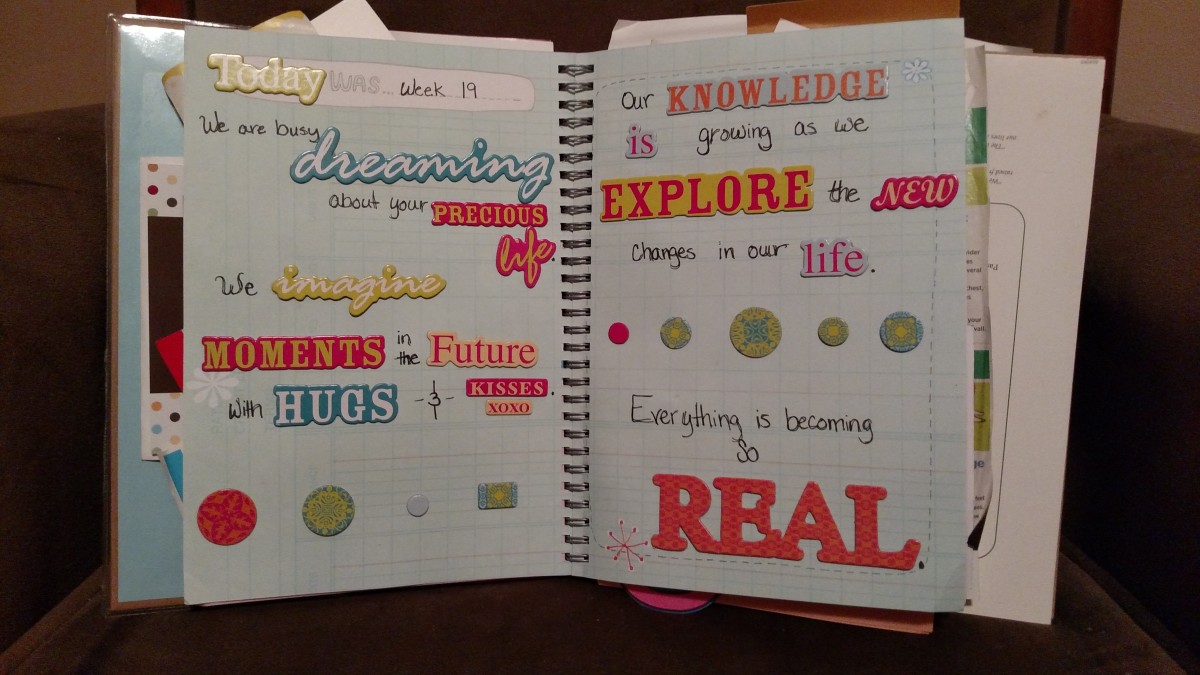 Today WAS... Week 19
We are busy
dreaming
about your PRECIOUS
life.
We imagine
MOMENTS in the Future
With HUGS & KISSES XOXO.
Our KNOWLEDGE
is growing as we
EXPLORE the NEW
Changes in our life.
Everything is becoming
So
REAL.